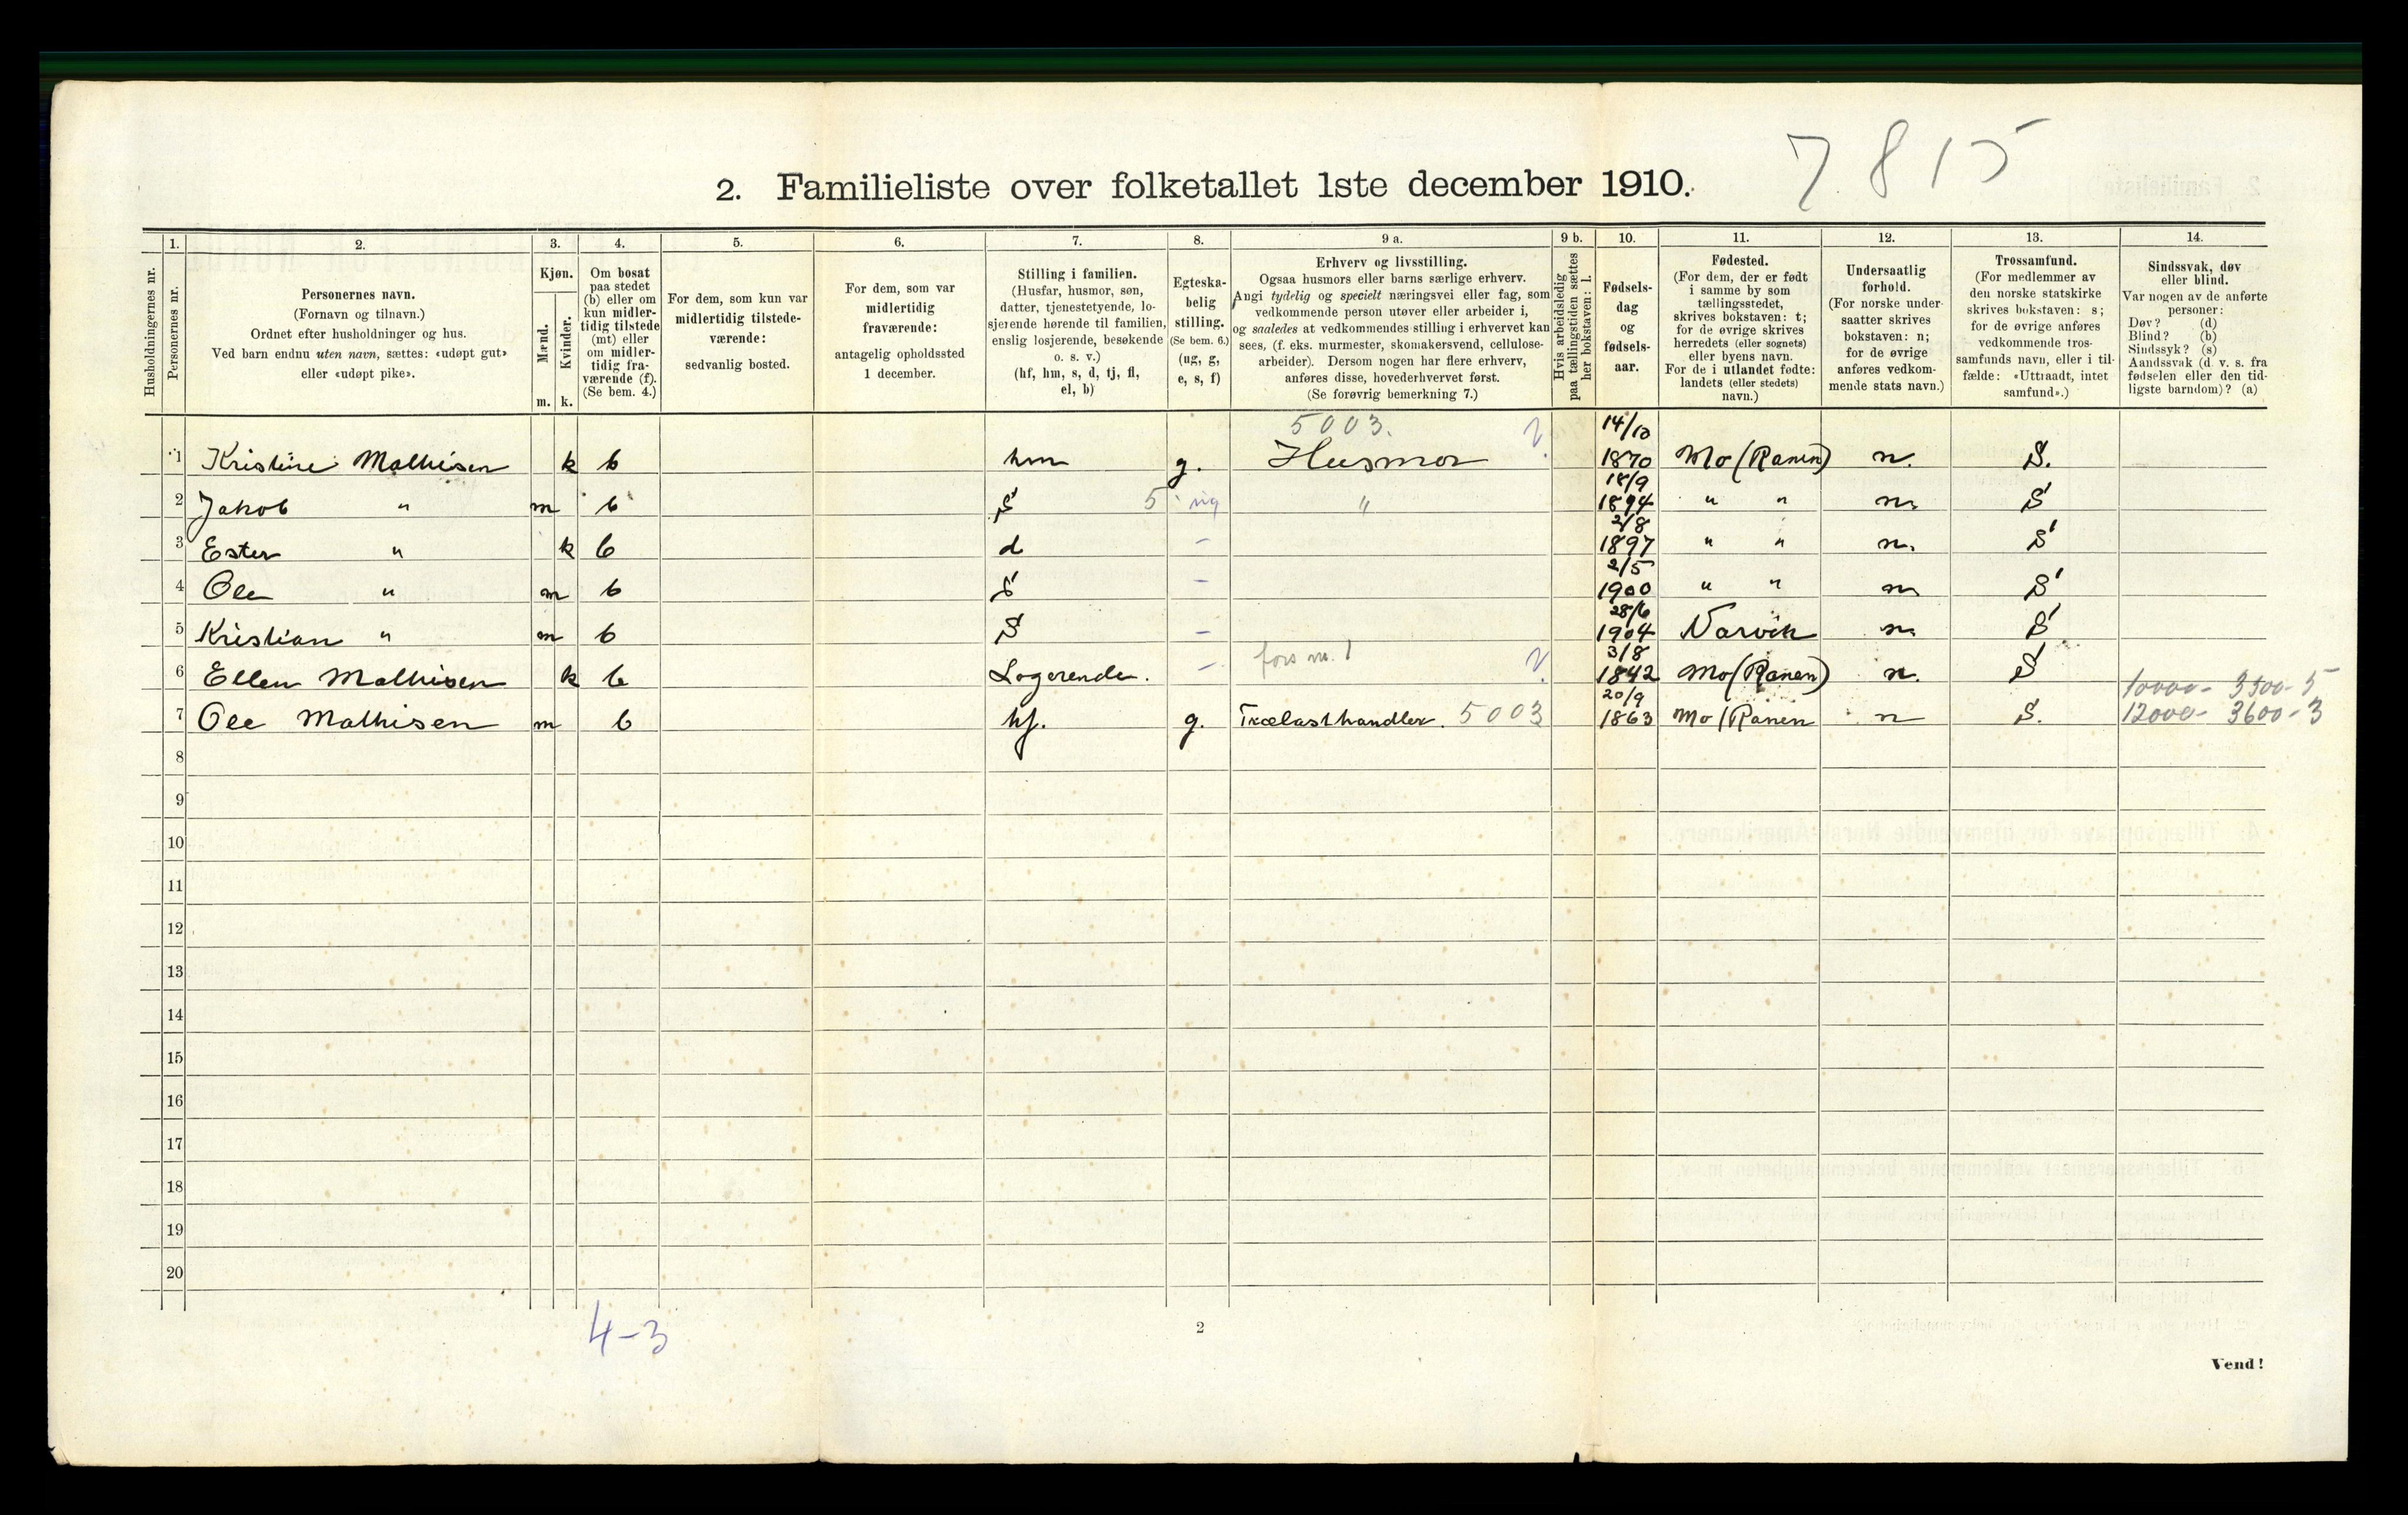 7815
2. Familieliste over folketallet 1ste december 1910.
Husholdningernes nr.
1. Personernes nr.
2. Personernes navn. (Fornavn og tilnavn.) Ordnet efter husholdninger og hus. Ved barn endnu uten navn, sættes: «udøpt gut» eller «udøpt pike».
3. Kjøn. Mænd. m. Kvinder. k.
4. Om bosat paa stedet (b) eller om kun midlertidig tilstede (mt) eller om midlertidig fraværende (f). (Se bem. 4.)
5. For dem, som kun var midlertidig tilstedeværende: sedvanlig bosted.
6. For dem, som var midlertidig fraværende: antagelig opholdssted 1 december.
7. Stilling i familien. (Husfar, husmor, søn, datter, tjenestetyende, losjerende hørende til familien, enslig losjerende, besøkende o. s. v.) (hf, hm, s, d, tj, fl, el, b)
8. Egteskabelig stilling. (Se bem. 6.) (ug, g, e, s, f)
9 a. Erhverv og livsstilling. Ogsaa husmors eller barns særlige erhverv. Angi tydelig og specielt næringsvei eller fag, som vedkommende person utøver eller arbeider i, og saaledes at vedkommendes stilling i erhvervet kan sees, (f. eks. murmester, skomakersvend, cellulosearbeider). Dersom nogen har flere erhverv, anføres disse, hovederhvervet først. (Se forøvrig bemerkning 7.)
9 b. Hvis arbeidsledig paa tællingstiden sættes her bokstaven: l.
10. Fødselsdag og fødselsaar.
11. Fødested. (For dem, der er født i samme by som tællingsstedet, skrives bokstaven: t; for de øvrige skrives herredets (eller sognets) eller byens navn. For de i utlandet fødte: landets (eller stedets) navn.)
12. Undersaatlig forhold. (For norske undersaatter skrives bokstaven: n; for de øvrige anføres vedkommende stats navn.)
13. Trossamfund. (For medlemmer av den norske statskirke skrives bokstaven: s; for de øvrige anføres vedkommende trossamfunds navn, eller i tilfælde: «Uttraadt, intet samfund».)
14. Sindssvak, døv eller blind. Var nogen av de anførte personer: Døv? (d) Blind? (b) Sindssyk? (s) Aandssvak (d. v. s. fra fødselen eller den tidligste barndom)? (a)
1 Kristine Mathisen k b hm g. 5003. Husmor 14/10 1870 Mo (Ranen) n. S.
2 Jakob " m b S 5 ug " 18/9 1894 " " n. S
3 Ester " k b d - 2/8 1897 " " n. S
4 Ole " m b S - 2/5 1900 " " n S
5 Kristian " m b S - 28/6 1904 Narvik n. S
6 Ellen Mathisen k b Logerende. - fors m. 1 3/8 1842 Mo (Ranen) n. S 10000- 3500-5
7 Ole Mathisen m b hf. g. Trælasthandler. 5003 20/9 1863 Mo (Ranen n S. 12000- 3600-3
8
9
10
11
12
13
14
15
16
17
18
19
20
4-3
2
Vend!